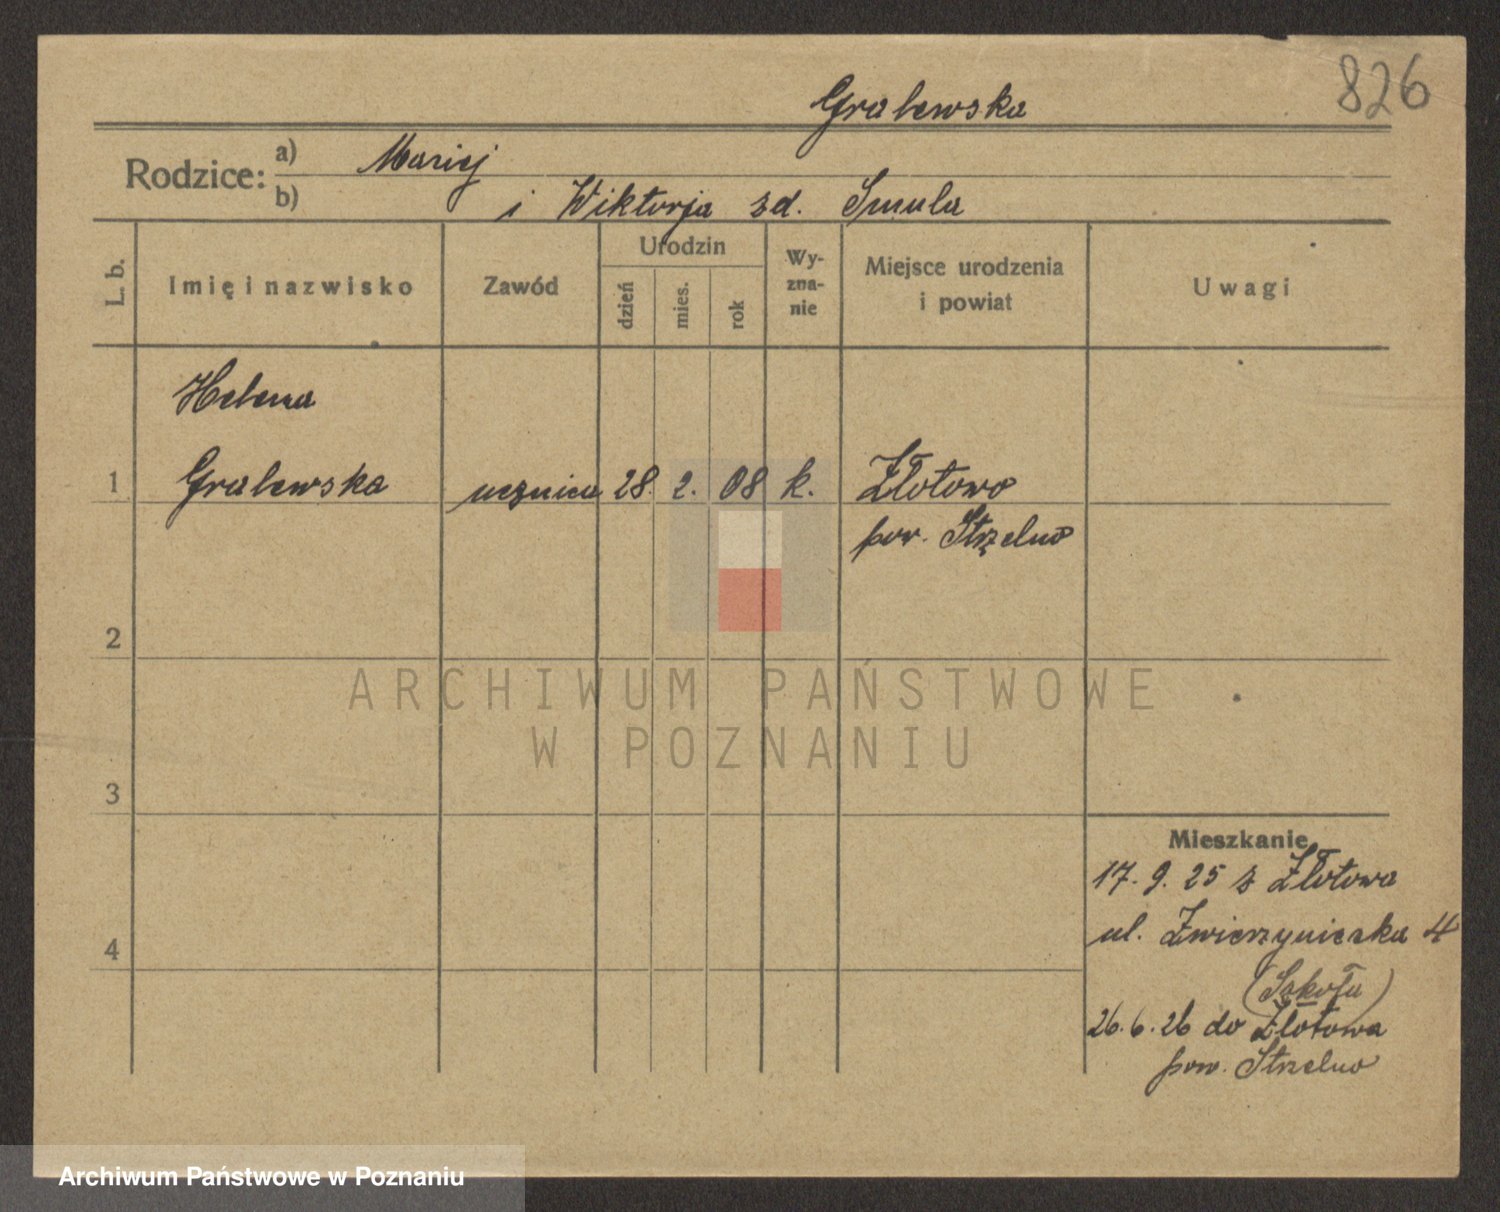 826
Gralewska
Rodzice:
a) Maciej
b) i Wiktorja zd. Smula
L. b.
Imię i nazwisko
Zawód
Urodzin
dzień
mies.
rok
Wy-
zna-
nie
Miejsce urodzenia
i powiat
Uwagi
Helena
1 Gralewska ucznica 28. 2. 08 k. Złotowo
pow. Strzelno
2
3
4
Mieszkanie
17. 9. 25 z Złotowa
ul. Zwierzyniecka 4
(Sokoła)
26. 6. 26 do Złotowa
pow. Strzelno
ARCHIWUM PAŃSTWOWE
W POZNANIU
Archiwum Państwowe w Poznaniu